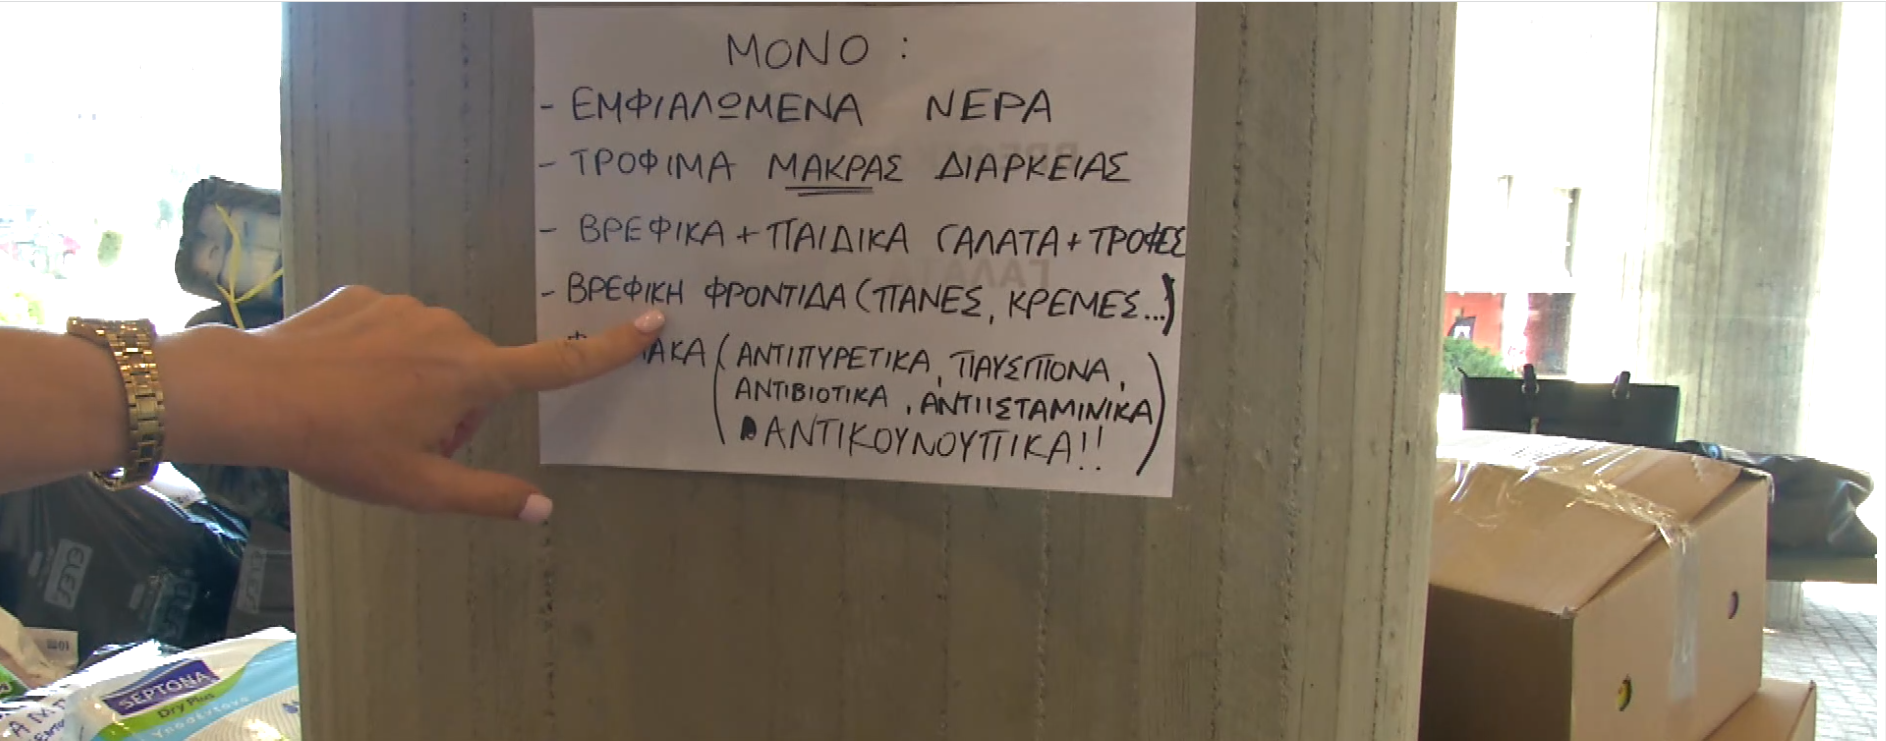 ΜΟΝΟ :
- ΕΜΦΙΑΛΩΜΕΝΑ ΝΕΡΑ
- ΤΡΟΦΙΜΑ ΜΑΚΡΑΣ ΔΙΑΡΚΕΙΑΣ
- ΒΡΕΦΙΚΑ + ΠΑΙΔΙΚΑ ΓΑΛΑΤΑ + ΤΡΟΦΕΣ
- ΒΡΕΦΙΚΗ ΦΡΟΝΤΙΔΑ (ΠΑΝΕΣ, ΚΡΕΜΕΣ...)
(ΑΝΤΙΠΥΡΕΤΙΚΑ, ΠΑΥΣΙΠΟΝΑ,
ΑΝΤΙΒΙΟΤΙΚΑ, ΑΝΤΙΙΣΤΑΜΙΝΙΚΑ)
ΑΝΤΙΚΟΥΝΟΥΠΙΚΑ!!
SEPTONA
Dry Plus
Υποσέντονα